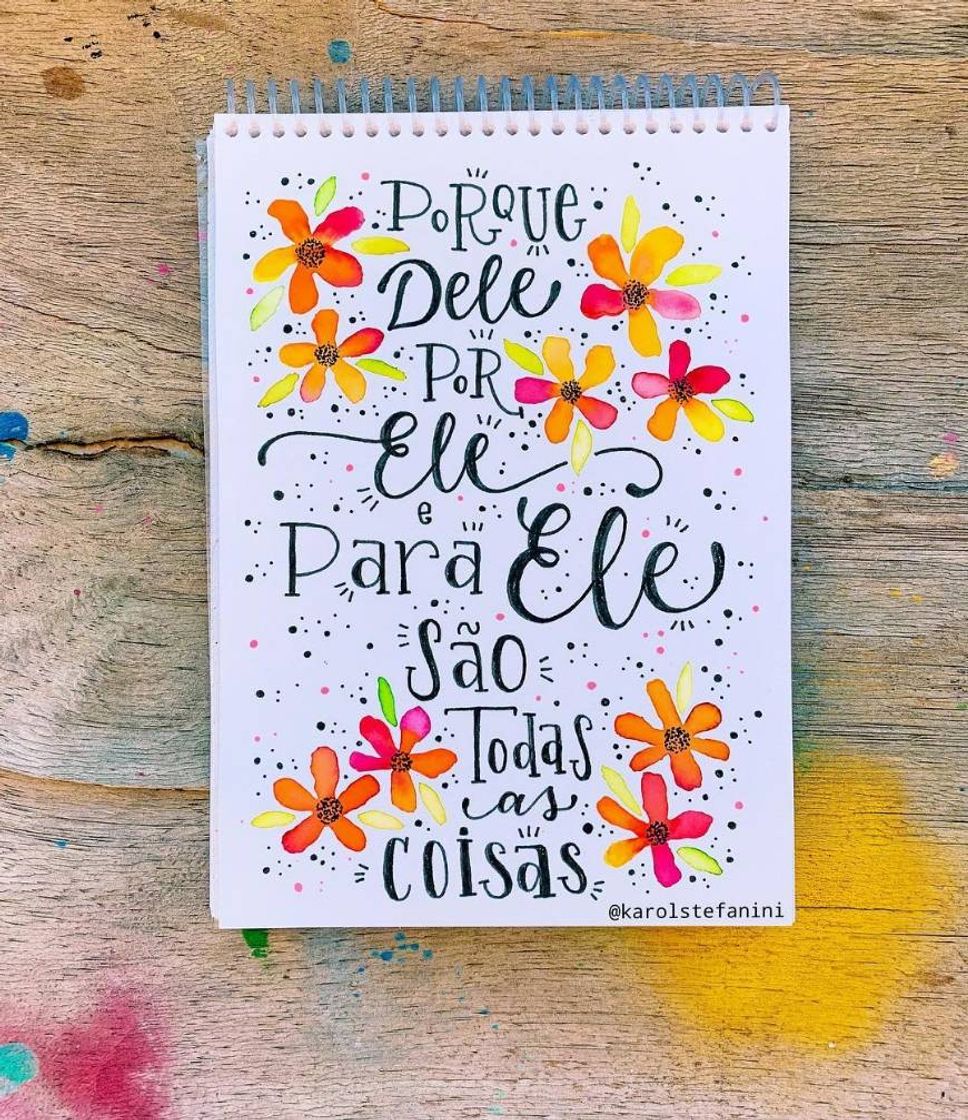 PORQUE
Dele
POR
Ele
e
Para Ele
São
Todas
as
COISAS
@karolstefanini